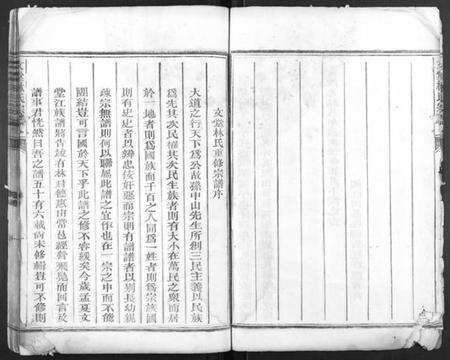 文堂林氏重修宗譜序
大道之行天下爲公故孫中山先生所創三民主義以民族
爲先其次民權其次民生族者則有大小在萬民之衆而居
於一地者則爲國族而千百之人同爲一姓者則爲宗族國
則有史史者以辨忠佞奸惡而宗則有譜譜者以別長幼親
疎宗無譜則何以聯屬此譜之宜作也在一宗之中而不能
團結豈可言國於天下乎此譜之修不容緩矣今歲孟夏文
堂江族譜將告竣有林君
譜事君恍然曰吾之譜五十有六載尚未修輯豈可不修則